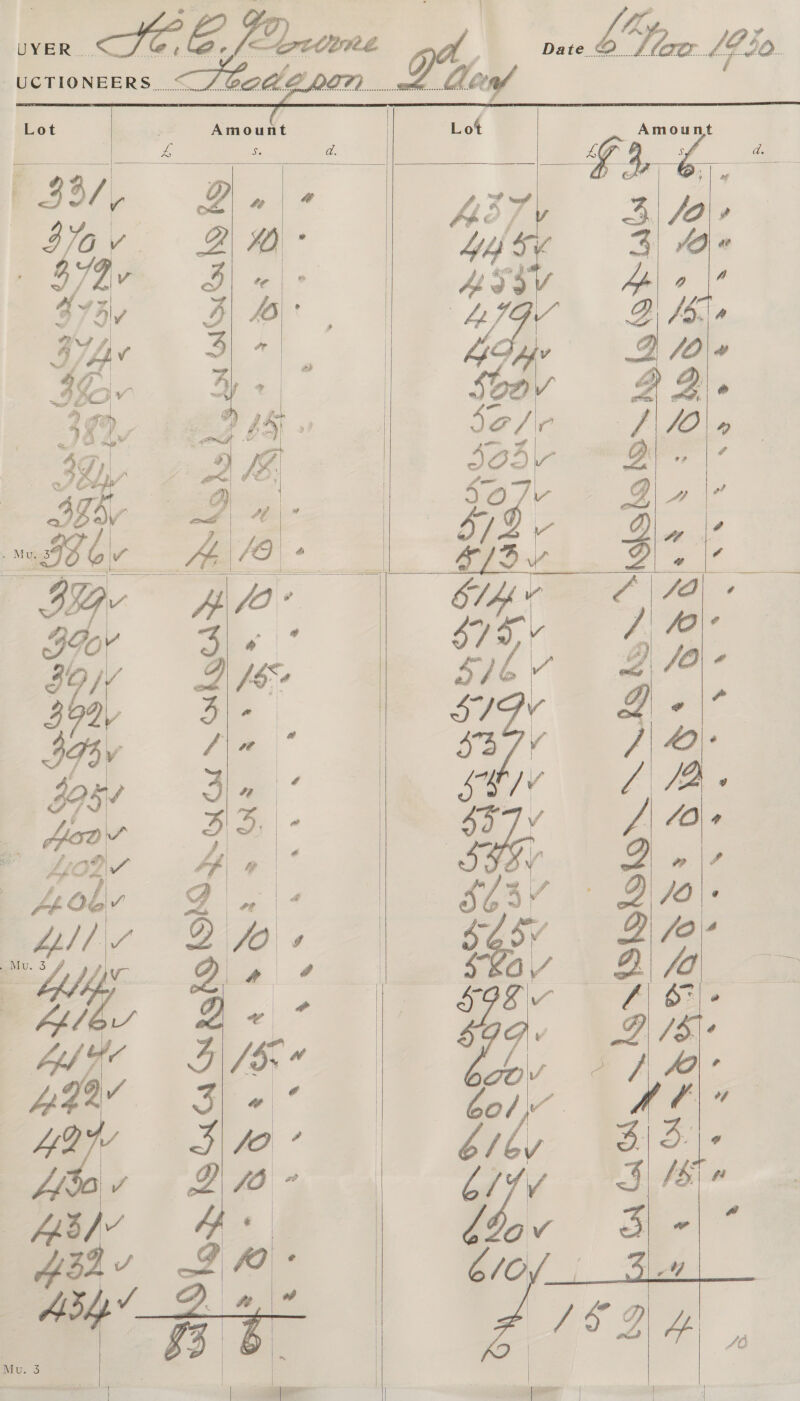 UYER H. C. Date 6 Nov 1930
UCTIONEERS Hodgson & Co
Lot Amount Lot Amount
£ s. d. £ s. d.
83 6 "
331 2 " "
370 2 10 "
372 3 " "
373 3 10 "
374 3 "
380 3 "
382 2 15 "
384 2 15
385 2 " "
Mu. 3
386 4 10 "
389 4 10 "
390 3 " "
391 2 15 "
392 3 "
393 1 " "
395 3 " "
400 3 3 "
402 4 " "
406 2 " "
411 2 10 "
Mu. 3
414 2 " "
416 2 " "
417 3 15 "
422 3 " "
427 3 10 "
430 2 10 "
431 4 "
432 2 10 "
434 2 " "
83 6
Mu. 3
437 3 10 "
445 3 10 "
455 4 " "
479 2 15 "
494 2 10 "
500 2 2 "
501 1 10 "
505 2 " "
507 2 " "
512 2 " "
513 2 " "
514 1 10 "
515 1 10 "
516 2 10 "
519 2 " "
537 1 10 "
1 12 "
557 1 10 "
558 2 " "
563 2 10 "
565 2 10 "
580 2 10
598 1 5 "
599 2 15 "
600 1 10 "
601
616 3 3 "
617 3 15 "
620 3 " "
610 3 "
£ 152 4
10